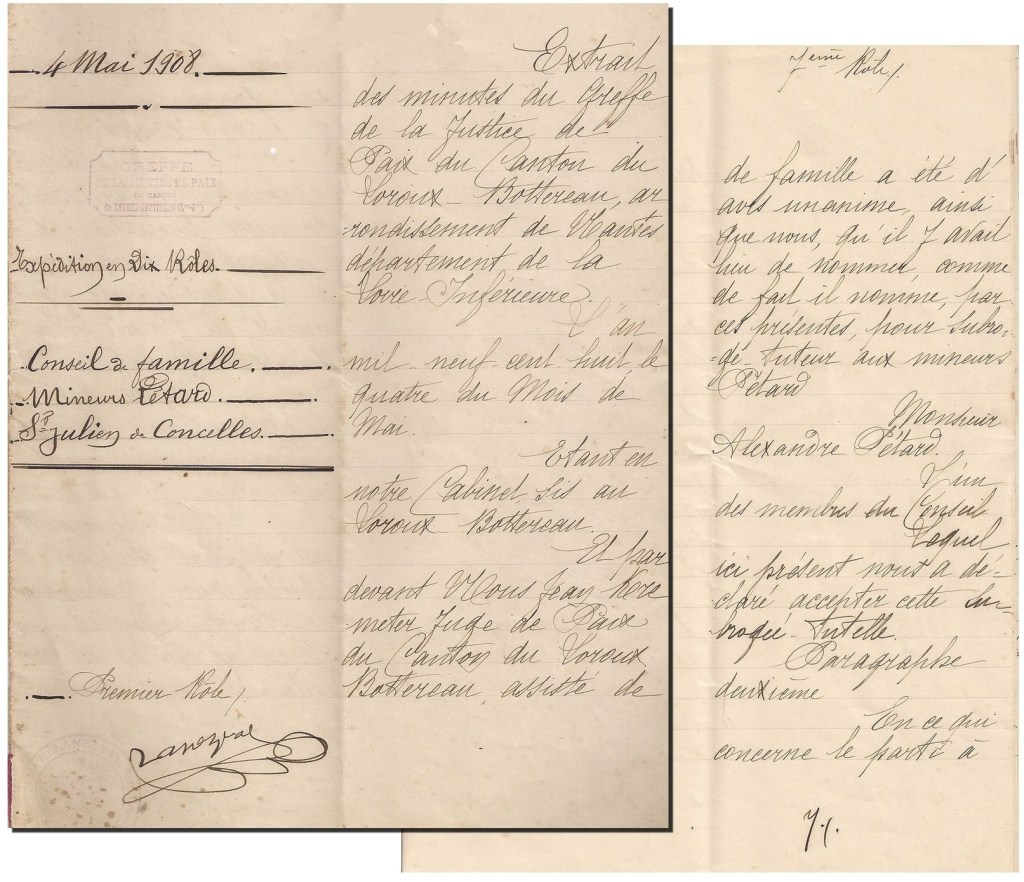 4 Mai 1908.
GREFFE
DE LA JUSTICE DE PAIX
DU CANTON
Expédition en Dix Rôles.
Conseil de famille.
Mineurs Pétard.
St Julien de Concelles.
Premier Rôle/
Extrait
des minutes du Greffe
de la Justice de
Paix du Canton du
Loroux-Bottereau, ar
-rondissement de Nantes
département de la
Loire-Inférieure.
L'an
mil-neuf-cent huit, le
quatre du Mois de
Mai.
Etant en
notre Cabinet, sis au
Loroux Bottereau,
Et par
devant Nous Jean Kre
meter Juge de Paix
du Canton du Loroux
Bottereau, assisté de
7ème Rôle/.
de famille a été d'
avis unanime, ainsi
que nous, qu'il y avait
lieu de nommer, comme
de fait il nomme, par
ces présentes, pour Subro-
-gé-tuteur aux mineurs
Pétard
Monsieur
Alexandre Pétard.
L'un
des membres du Conseil
Lequel
ici présent nous a dé-
claré accepter cette Su-
brogée-Tutelle.
Paragraphe
deuxième
En ce qui
concerne le parti à
7/.